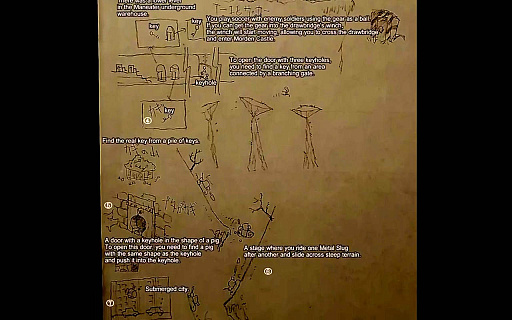 There was a lower level
in the Maneater underground
warehouse.
You play soccer with enemy soldiers using the gear as a ball.
If you can get the gear into the drawbridge's winch,
the winch will start moving, allowing you to cross the drawbridge
and enter Morden Castle.
key
key
To open the door with three keyholes,
you need to find a key from an area
connected by a branching gate.
keyhole
key
④
Find the real key from a pile of keys.
⑤
A door with a keyhole in the shape of a pig.
To open this door, you need to find a pig
with the same shape as the keyhole
and push it into the keyhole.
A stage where you ride one Metal Slug
after another and slide across steep terrain.
⑥
Submerged city.
⑦